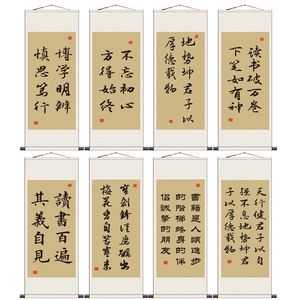 博学明辨
慎思笃行
不忘初心
方得始终
地势坤君子以
厚德载物
读书破万卷
下笔如有神
讀書百遍
其義自見
寳劍鋒從磨礪出
梅花香自苦寒来
書籍是人類進步
的階梯終身的伴
侶誠摯的朋友
天行健君子以自
强不息地势坤君
子以厚德载物